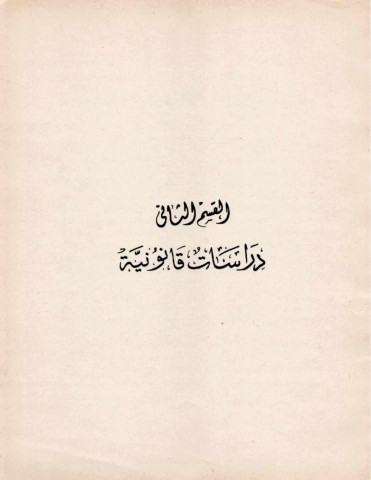 القسم الثانى
دراسات قانونية